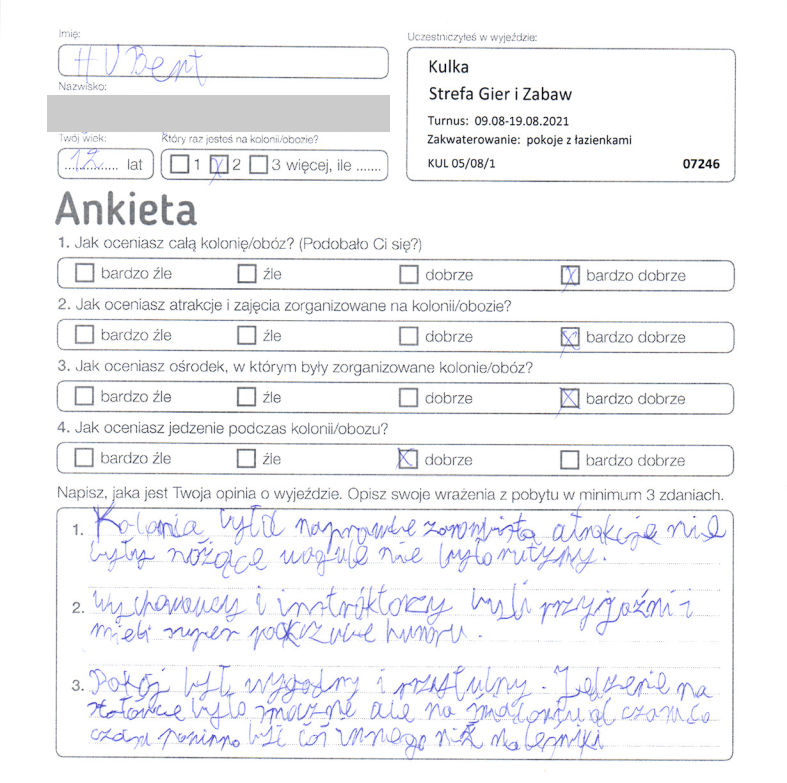 Imię:
HUBert
Uczestniczyłeś w wyjeździe:
Kulka
Strefa Gier i Zabaw
Turnus: 09.08-19.08.2021
Zakwaterowanie: pokoje z łazienkami
KUL 05/08/1 07246
Nazwisko:
Twój wiek: Który raz jesteś na kolonii/obozie?
12 lat 1 2 3 więcej, ile .......
Ankieta
1. Jak oceniasz całą kolonię/obóz? (Podobało Ci się?)
bardzo źle źle dobrze bardzo dobrze
2. Jak oceniasz atrakcje i zajęcia zorganizowane na kolonii/obozie?
bardzo źle źle dobrze bardzo dobrze
3. Jak oceniasz ośrodek, w którym były zorganizowane kolonie/obóz?
bardzo źle źle dobrze bardzo dobrze
4. Jak oceniasz jedzenie podczas kolonii/obozu?
bardzo źle źle dobrze bardzo dobrze
Napisz, jaka jest Twoja opinia o wyjeździe. Opisz swoje wrażenia z pobytu w minimum 3 zdaniach.
1. Kolonia była naprawde atrakcje nie
były nużące wogule nie było rutyny.
2. wychowawcy i instróktorzy byli przyjaźni i
mieli super poczucie humoru.
3. Pokój był wygodny i przytulny. Jedzenie na
stołówce było smaczne ale na od czasu do
czasu być coś innego niż naleśniki